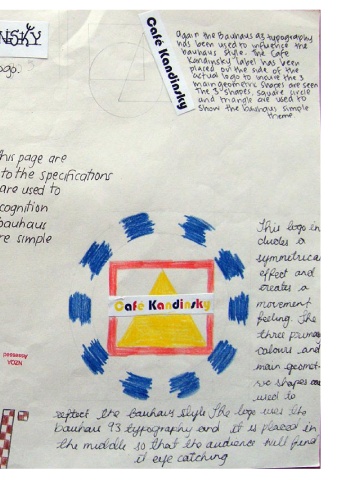 NSKY
ogo.
Café Kandinsky
Again the Bauhaus 93 typography
has been used to influence the
bauhaus style. The Café
Kandinsky label has been
placed on the side of the
actual logo to insure the 3
main geometric shapes are seen
The 3 shapes, square circle
and triangle are used to
show the bauhaus simple
theme
his page are
to the specifications
are used to
cognition
bauhaus
re simple
This logo in
cludes a
symmetrical
effect and
creates a
movement
feeling. The
three primary
colours and
main geomet-
ric shapes are
used to
Café Kandinsky
reflect the bauhaus style The logo uses the
bauhaus 93 typography and it is placed in
the middle so that the audience will find
it eye catching